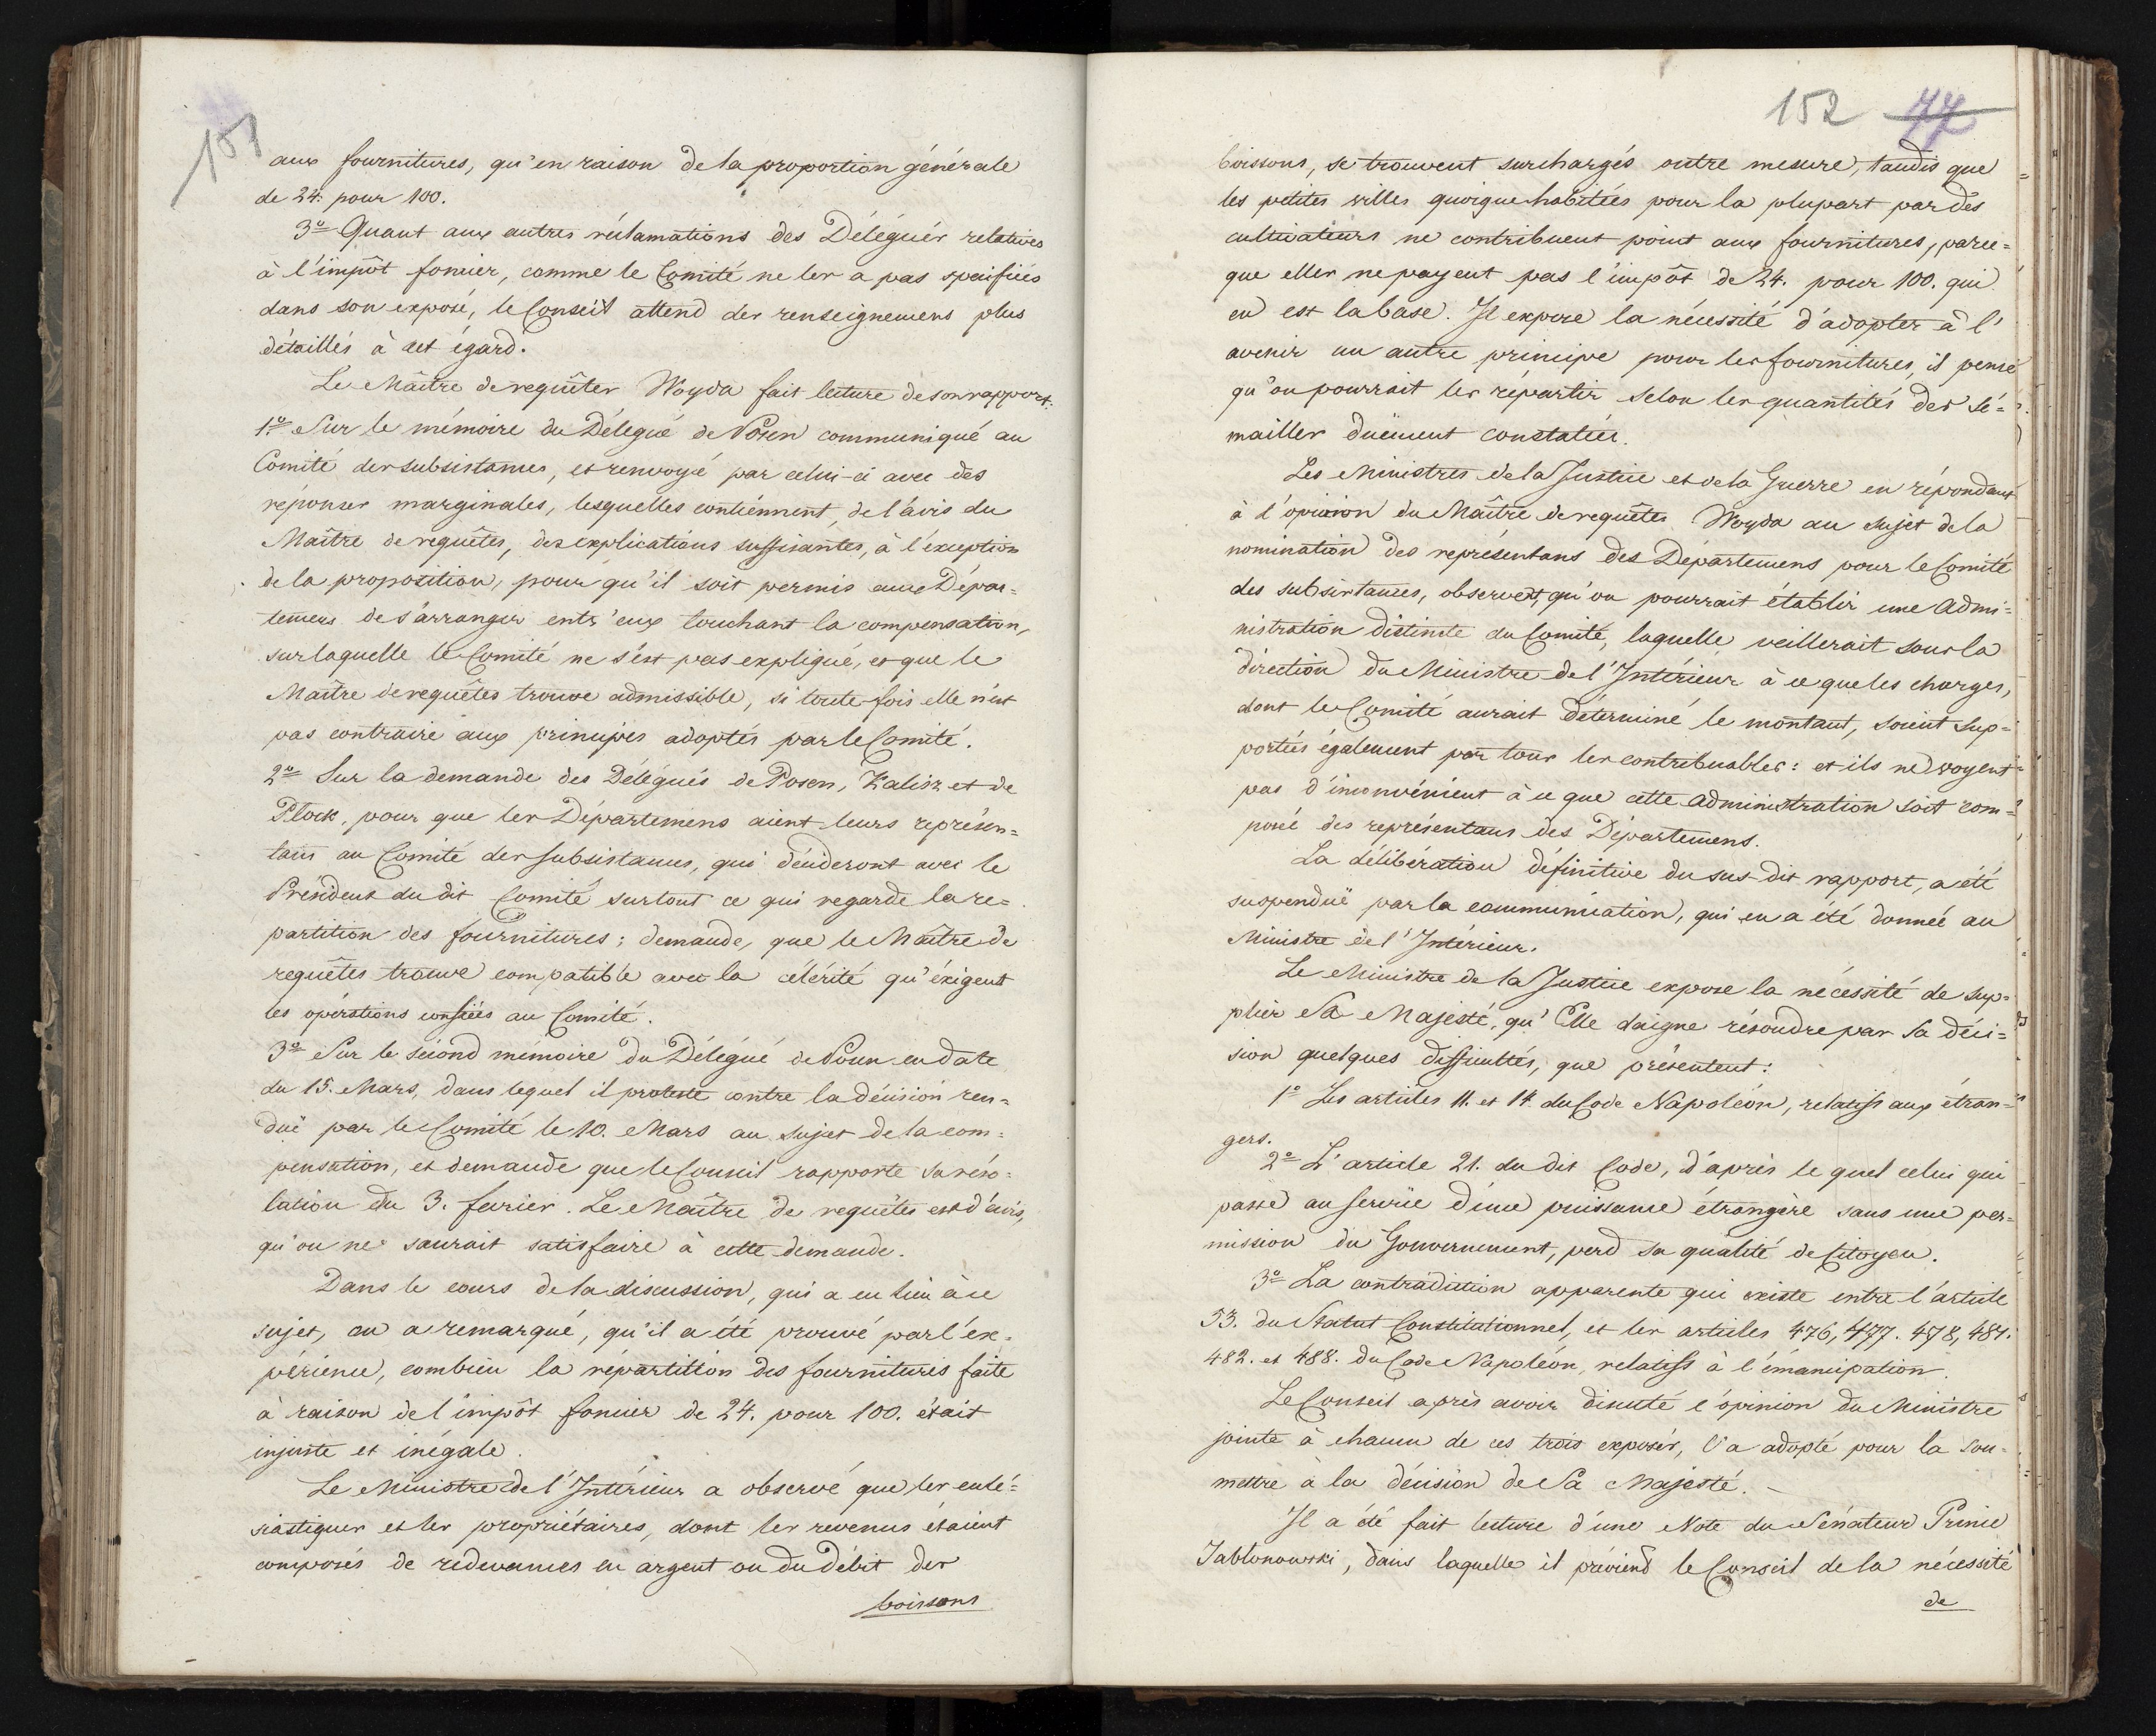 151
aux fournitures, qu'en raison de la proportion générale
de 24. pour 100.
3º Quant aux autres réclamations des Délégués relatives
à l'impôt foncier, comme le Comité ne les a pas spécifiées
dans son exposé, le Conseil attend des renseignemens plus
détaillés à cet égard.
Le Maître de requêtes Woyda fait lecture de son rapport:
1º Sur le mémoire du Délégué de Posen communiqué au
Comité des subsistances, et renvoyé par celui-ci avec des
réponses marginales, lesquelles contiénnent, de l'avis du
Maître de requêtes, des explications suffisantes, à l'exception
de la proposition, pour qu'il soit permis aux Dépar=
temens de s'arranger entr'eux touchant la compensation,
sur laquelle le Comité ne s'est pas expliqué, et que le
Maître de requêtes trouve admissible, si toute-fois elle n'est
pas contraire aux principes adoptés par le Comité.
2º Sur la demande des Délégués de Posen, Kalisz et de
Plock, pour que les Départemens aient leurs représen=
tans au Comité des subsistances, qui décideront avec le
Président du dit Comité surtout ce qui regarde la re=
partition des fournitures; demande, que le Maître de
requêtes trouve compatible avec la célérité qu'éxigent
les opérations confiées au Comité.
3º Sur le sécond mémoire du Délégué de Posen en date
du 15. Mars, dans lequel il proteste contre la décision ren=
düe par le Comité le 10. Mars au sujet de la com=
pensation, et demande que le Conseil rapporte sa réso=
lution du 3. fevrier. Le Maître de requêtes est d'avis,
qu'on ne saurait satisfaire à cette demande.
Dans le cours de la discussion, qui a eu lieu à ce
sujet, on a remarqué, qu'il a été prouvé par l'ex=
périence, combien la répartition des fournitures faite
à raison de l'impôt foncier de 24. pour 100. était
injuste et inégale.
Le Ministre de l'Intérieur a observé que les ecclé=
siastiques et les propriétaires, dont les revenus étaient
composés de rédevances en argent ou du débit des
boissons
152 77
boissons, se trouvent surchargés outre mesure, tandis que
les petites villes quoique habitées pour la plupart par des
cultivateurs ne contribuent point aux fournitures, parce=
que elles ne payent pas l'impôt de 24. pour 100. qui
en est la base. Il expose la nécessité d'adopter à l'
avenir un autre principe pour les fournitures, il pense
qu'on pourrait les répartir selon les quantités des sé=
mailles duëment constatées.
Les Ministres de la Justice et de la Guerre en répondant
à l'opinion du Maître de requêtes Woyda au sujet de la
nomination des représentans des Départemens pour le Comité
des subsistances, observent, qu'on pourrait établir une admi=
nistration distincte du Comité, laquelle veillerait sous la
direction du Ministre de l'Intérieur à ce que les charges,
dont le Comité aurait déterminé le montant, soient sup=
portées également par tous les contribuables: et ils ne voyent
pas d'inconvénient à ce que cette administration soit com=
posée des représentans des Départemens.
La délibération définitive du sus-dit rapport, a été
suspendüe par la communication, qui en a été donnée au
Ministre de l'Intérieur.
Le Ministre de la Justice expose la nécessité de sup=
plier Sa Majesté, qu'Elle daigne résoudre par Sa déci=
sion quelques difficultés, que présentent:
1º Les articles 11. et 14. du Code Napoléon, relatifs aux étran=
gers.
2º L'article 21. du dit Code, d'après le quel celui qui
passe au service d'une puissance étrangère sans une per=
mission du Gouvernement, perd sa qualité de Citoyen.
3º La contradiction apparente qui existe entre l'article
53. du Statut Constitutionnel, et les articles 476, 477. 478, 481.
482. et 488. du Code Napoléon, relatifs à l'émancipation.
Le Conseil après avoir discuté l'opinion du Ministre
jointe à chacun de ces trois exposés, l'a adopté pour la sou=
mettre à la décision de Sa Majesté.
Il a été fait lecture d'une Note du Sénateur Prince
Jablonowski, dans laquelle il prévient le Conseil de la nécessité
de